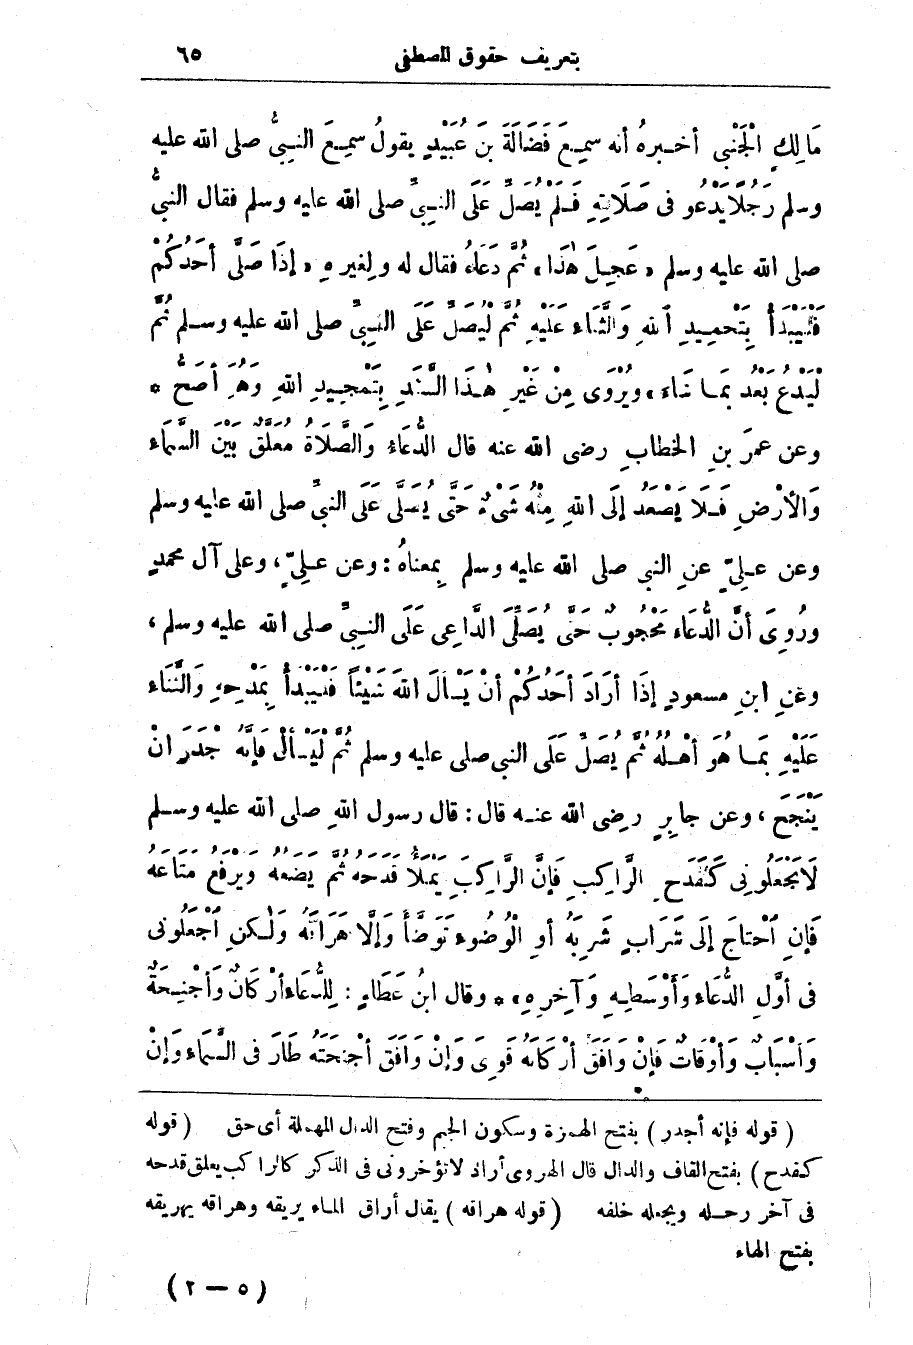 بتعريف حقوق المصطفى ٦٥
مَالِكٍ الْجَنْبِى أخبره أنه سَمِعَ فَضَالَةَ بنَ عُبَيْدٍ يقولُ سَمِعَ النَّبِىُّ صلى الله عليه
وسلم رَجُلًا يَدْعُو فى صَلَاتِهِ فَلَمْ يُصَلِّ عَلَى النَّبِىِّ صلى الله عليه وسلم فقال النبىُّ
صلى الله عليه وسلم «عَجِلَ هٰذَا» ثُمَّ دَعَاهُ فقال له ولغيرِهِ «إذَا صَلَّى أَحَدُكُمْ
فَلْيَبْدَأْ بِتَحْمِيدِ اللهِ وَالثَّنَاءِ عَلَيْهِ ثُمَّ لْيُصَلِّ عَلَى النَّبِىِّ صلى الله عليه وسلم ثُمَّ
لْيَدْعُ بَعْدُ بِمَا شَاءَ» ويُرْوَى مِنْ غَيْرِ هٰذَا السَّنَدِ بِتَمْجِيدِ اللهِ وَهُوَ أصَحُّ *
وعن عمرَ بنِ الخطابِ رضى الله عنه قال الدُّعَاءُ وَالصَّلَاةُ مُعَلَّقٌ بَيْنَ السَّمَاءِ
وَالْأَرْضِ فَلَا يَصْعَدُ إلَى اللهِ مِنْهُ شَىْءٌ حَتَّى يُصَلَّى عَلَى النبىِّ صلى الله عليه وسلم
وعن عَلِىٍّ عنِ النبى صلى الله عليه وسلم بِمعناهُ: وعن عَلِىٍّ، وعلى آل محمدٍ
ورُوِىَ أنَّ الدُّعَاءَ مَحْجُوبٌ حَتَّى يُصَلِّىَ الدَّاعِى عَلَى النَّبِىِّ صلى الله عليه وسلم،
وعَنِ ابنِ مسعودٍ إذَا أرَادَ أَحَدُكُمْ أنْ يَسْأَلَ اللهَ شَيْئًا فَلْيَبْدَأْ بِمَدْحِهِ وَالثَّنَاءِ
عَلَيْهِ بِمَا هُوَ أَهْلُهُ ثُمَّ يُصَلِّ عَلَى النبى صلى عليه وسلم ثُمَّ لْيَسْأَلْ فَإِنَّهُ أَجْدَرُ أنْ
يَنْجَحَ، وعن جابِرٍ رضى الله عنه قال: قال رسول اللهِ صلى الله عليه وسلم
لَا تَجْعَلُونِى كَقَدَحِ الرَّاكِبِ فَإِنَّ الرَّاكِبَ يَمْلَأُ قَدَحَهُ ثُمَّ يَضَعُهُ وَيَرْفَعُ مَتَاعَهُ
فَإِنِ احْتَاجَ إلَى شَرَابٍ شَرِبَهُ أوِ الْوُضُوءِ تَوَضَّأَ وَإلَّا هَرَاقَهُ وَلٰكِنِ اجْعَلُونى
فى أوَّلِ الدُّعَاءِ وَأَوْسَطِهِ وَآخِرِهِ» * وقال ابنُ عَطَاءٍ: لِلدُّعَاءِ أرْكَانٌ وَأَجْنِحَةٌ
وَأَسْبَابٌ وَأَوْقَاتٌ فَإِنْ وَافَقَ أَرْكَانَهُ قَوِىَ وَإنْ وَافَقَ أَجْنِحَتَهُ طَارَ فى السَّمَاءِ وَإنْ
( قوله فإنه أجدر ) بفتح الهمزة وسكون الجيم وفتح الدال المهملة أى حق ( قوله
كقدح ) بفتح القاف والدال قال الهروى أراد لا تؤخرونى فى الذكر كالراكب يعلق قدحه
فى آخر رحله ويجعله خلفه ( قوله هراقه ) يقال أراق الماء يريقه وهراقه يهريقه
بفتح الهاء
( ٥ — ٢ )